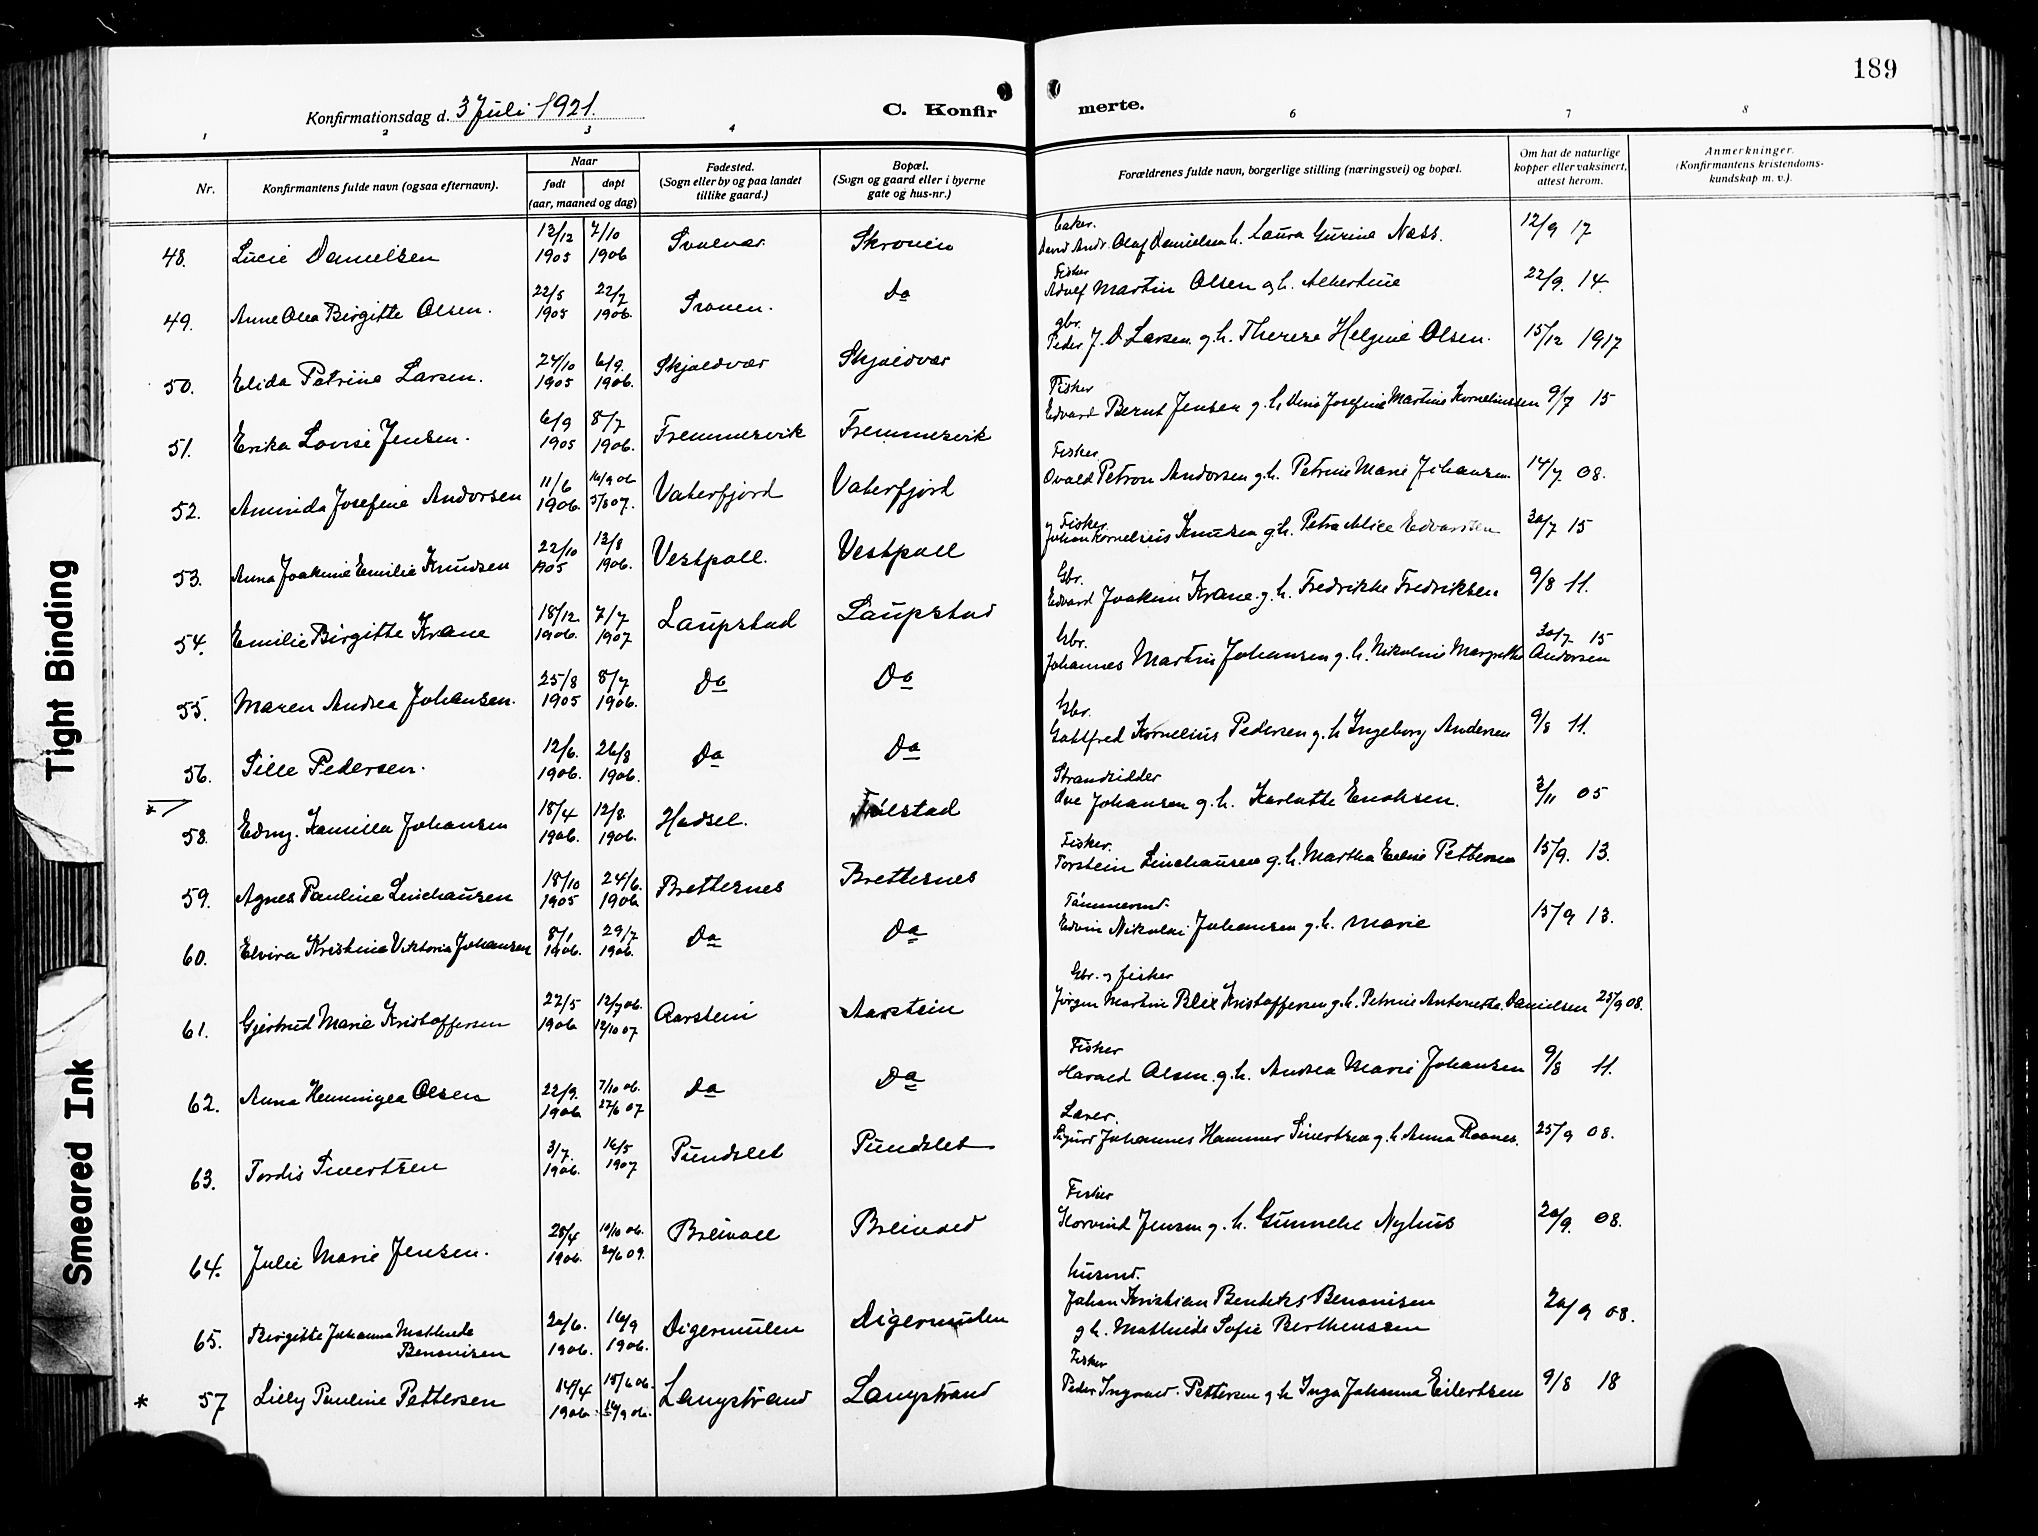 189
Konfirmationsdag d. 3 Juli 1921.
C. Konfirmerte.
1 2 3 4 6 7 8
Nr.
Konfirmantens fulde navn (ogsaa efternavn).
Naar
født døpt
(aar, maaned og dag)
Fødested.
(Sogn eller by og paa landet
tillike gaard.)
Bopæl.
(Sogn og gaard eller i byerne
gate og hus-nr.)
Forældrenes fulde navn, borgerlige stilling (næringsvei) og bopæl.
Om hat de naturlige
kopper eller vaksinert,
attest herom.
Anmerkninger.
(Konfirmantens kristendoms-
kundskap m. v.).
48. Lucie Danielsen 13/12 1905 7/10 1906 Svolvær Skroven
Baker. Olaf Danielsen h. Laura Gurine Næss. 12/9 17
49. Anne Olea Birgitte Olsen. 22/5 1905 22/7 1906. Do
Fisker Adolf Martin Olsen g h. Albertine 22/9. 14.
50. Elida Petrine Larsen. 24/10 1905 6/9. 1906. Skjoldvær Skjoldvær
gbr. Peder J. D Larsen g. h. Therese Helgine Olsen. 15/12 1917
51. Erika Lovise Jensen. 6/9 1905 8/7 1906. Fremmervik Fremmervik
Fisker Edvard Bernt Jensen g. h. Josefine Martine Kornelinssen 9/7 15
52. Aminda Josefine Andorsen 11/6 1906. 16/9 06 5/8 07. Vaterfjord Vaterfjord
Fisker Ovald Petron Andorsen g. h. Petrine Marie Johansen 14/7 08.
53. Anna Joakime Emilie Knudsen 22/10 1905 13/8 1906. Vestpoll. Vestpoll
Fisker. Johan Kornelius Knusen g. h. Petra Alice Edvarsten 30/7 15
54. Emilie Birgitte Krane 18/12 1906. 7/7 1907 Laupstad Laupstad
Gbr. Edvard Joakim Krane. g. h. Fredrikke Fredriksen 9/8 11.
55. Maren Andrea Johansen. 25/8 1905 8/7 1906. Do Do
Gbr. Johannes Martin Johansen g. h. Nikoline Margrethe Andorsen 30/7 15
56. Sille Pedersen. 12/6. 1906. 26/8 1906. Do Do
Gbr. Gottfred Kornelius Pedersen g. h Ingeborg Andersen 9/8 11.
* 57
58. Edny. Kamilla Johansen 18/4 1906. 12/8. 1906. Hadsel. Følstad
Strandsidder Ove Johansen g. h. Karlotte Enoksen. 2/11 05
59. Agnes Pauline Linehausen 18/10 1905 24/6. 1906 Bretternes Bretternes
Fisker. Torstein Linehausen g. h. Martha Eline Pettersen 15/9. 13.
60. Elvira Kristine Viktoria Johansen 8/1 1906. 29/7 1906. Do Do
Tømmermd. Edvin Nikolai Johansen g. h. Marie 15/9 13.
61. Gjertrud Marie Kristoffersen 22/5 1906 12/7 06. 12/10 07 Aarstein Aarstein
Gbr. og fisker Jørgen Martin Blix Kristoffersen g. h. Petrine Antonette. Danielsen 25/9 08.
62. Anna Hemmingea Olsen 22/9. 1906. 7/10 06. 27/6 07 Do Do
Fisker Harald Olsen. g. h. Andrea Marie Johansen 9/8 11.
63. Tordis Sivertsen 3/7. 1906. 16/5 1907 Pundslet Pundslet
Lærer. Sigurd Johannes Hammer Sivertsen g h Anna Raanes. 25/9 08.
64. Julie Marie Jensen. 28/4 1906. 10/10 06. 24/6 09. Breivoll Breivold
Fisker Korvind Jensen g. h. Gunnelie Nyhus 20/9. 08.
65. Birgitte Johanna Mathilde Benonisen 20/6. 1906. 16/9 1906. Digermulen Digermulen
Husmd. Johan Kristian Bendeks Benonisen
g h. Mathilde Sofie Berthenssen 20/9 08.
* 57 Lilly Pauline Pettersen 14/4 1906. 15/6 06. 16/9 06. Langstrand Langstrand
Fisker Peder Ingvald. Pettersen g h Inga Johanna Eilertsen 9/8 18
Tight Binding
Smeared Ink